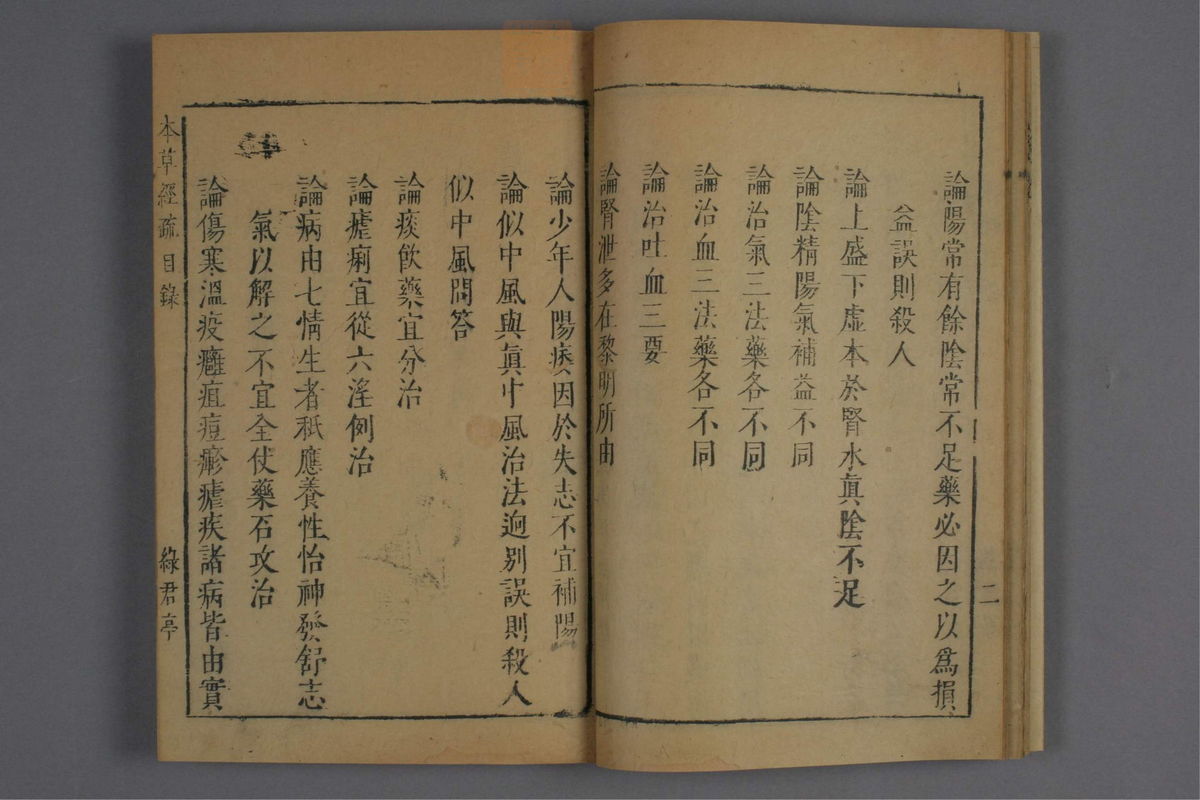 論陽常有餘陰常不足藥必因之以爲損
益誤則殺人
論上盛下虛本於腎水眞陰不足
論陰精陽氣補益不同
論治氣三法藥各不同
論治血三法藥各不同
論治吐血三要
論腎泄多在黎明所由
二
論少年人陽痿因於失志不宜補陽
論似中風與眞中風治法迥別誤則殺人
似中風問答
論痰飮藥宜分治
論瘧痢宜從六淫例治
論病由七情生者祇應養性怡神發舒志
氣以解之不宜全仗藥石攻治
論傷寒溫疫癰疽痘瘮瘧疾諸病皆由實
本草經疏 目錄
綠君亭